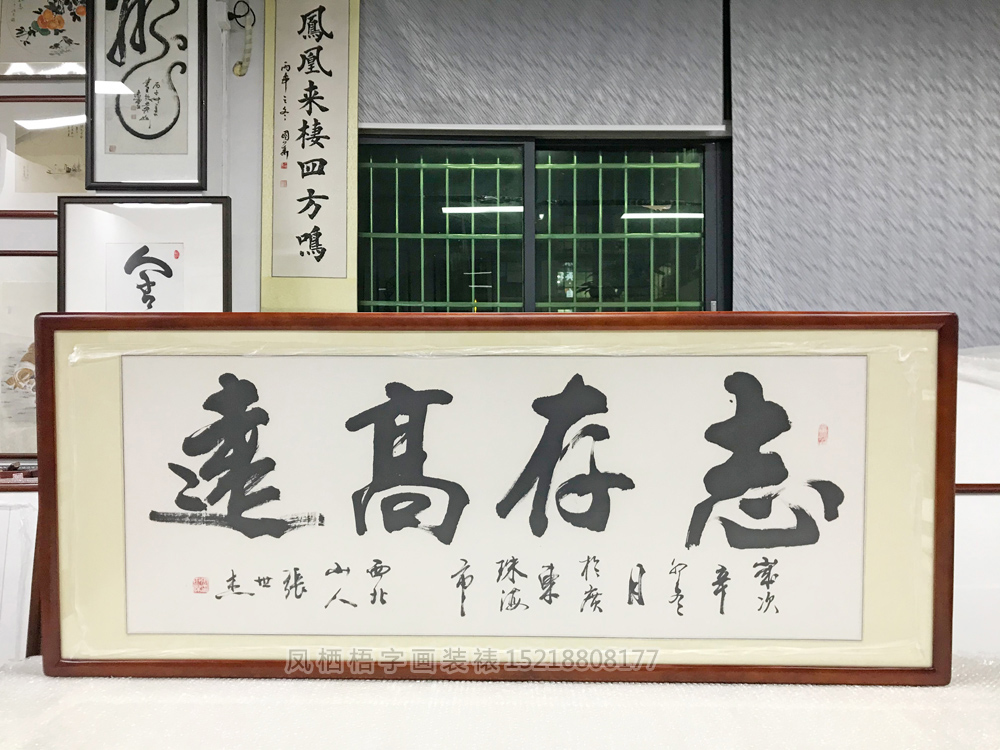 鳳凰来棲四方鳴
丙申之冬
志存髙遠
歲次辛卯冬月於廣東珠海市西北山人張世杰
凤栖梧字画装裱15218808177